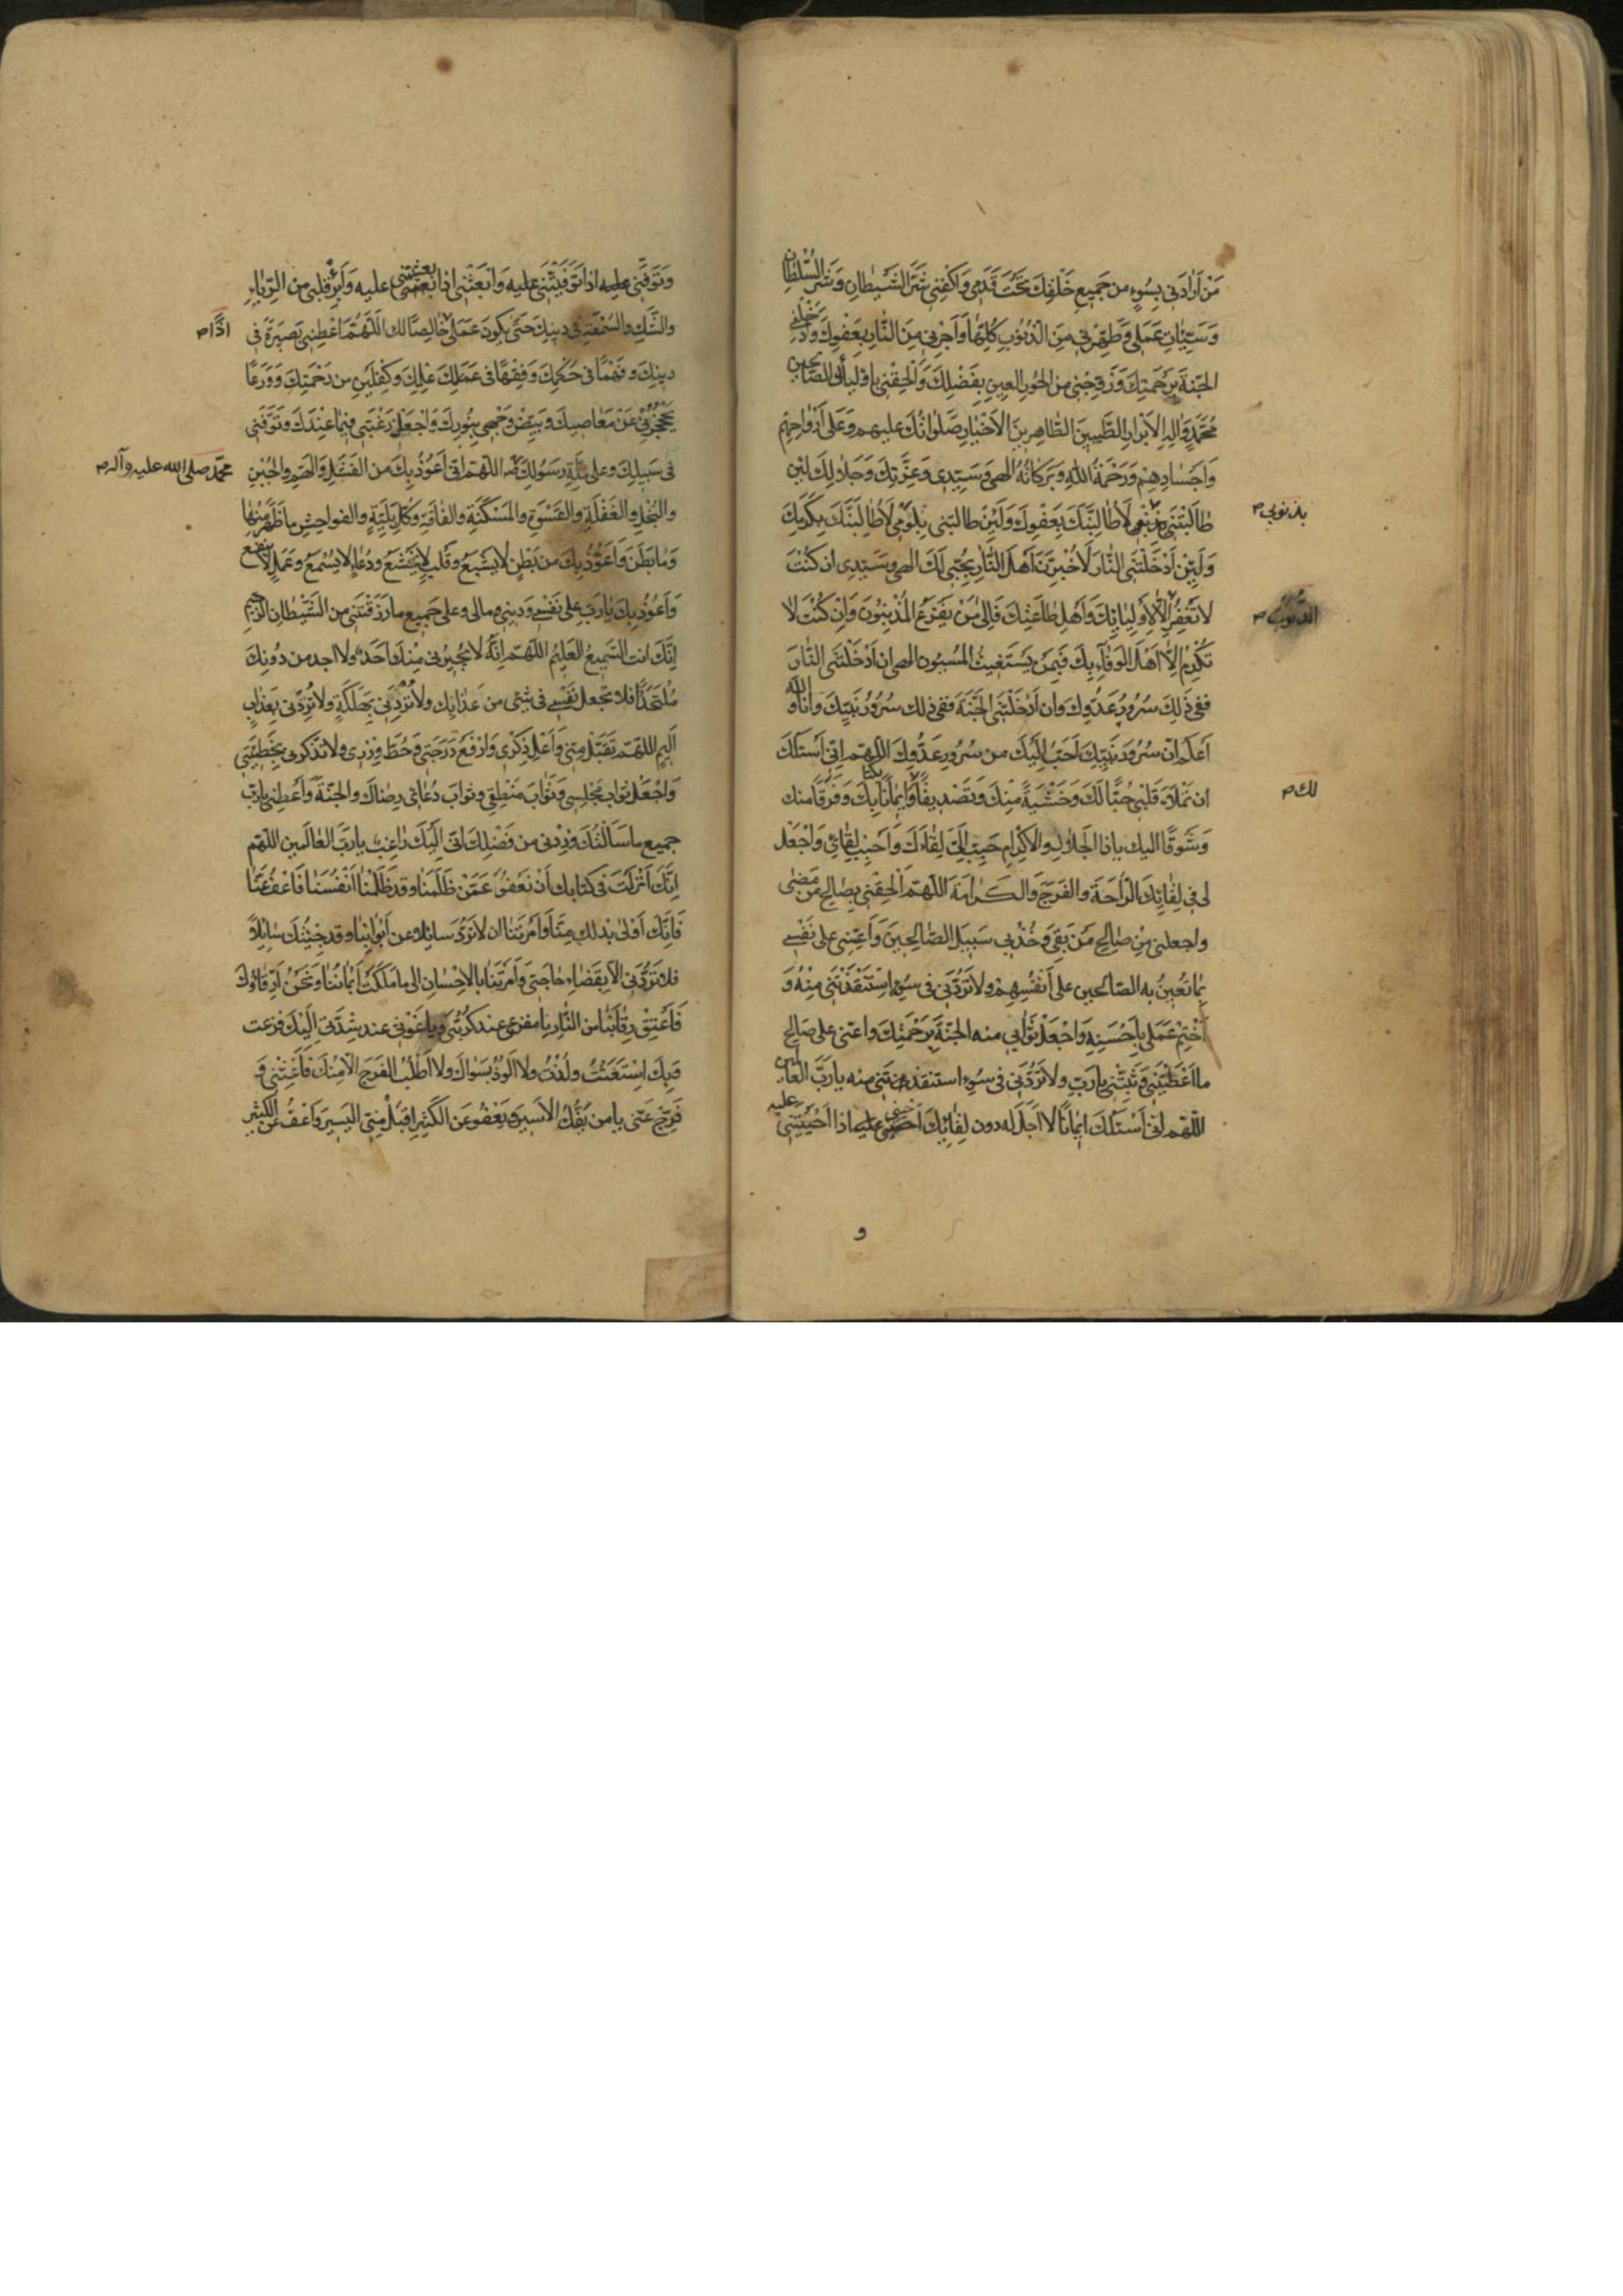 مَنْ اَرَادَنِي بِسُوءٍ من جَمِيعِ خَلْقِكَ تَحْتَ قَدَمِي وَاكْفِنِي شَرَّ الشَّيْطَانِ وَشَرَّ السُّلْطَانِ
وَسَيِّئَاتِ عَمَلِي وَطَهِّرْنِي مِنَ الذُّنُوبِ كُلِّهَا وَاَجِرْنِي مِنَ النَّارِ بِعَفْوِكَ وَاَدْخِلْنِي
الجَنَّةَ بِرَحْمَتِكَ وَزَوِّجْنِي مِنَ الحُورِ العِينِ بِفَضْلِكَ وَاَلْحِقْنِي بِاَوْلِيَائِكَ الصَّالِحِينَ
مُحَمَّدٍ وَآلِهِ الاَبْرَارِ الطَّيِّبِينَ الطَّاهِرِينَ الاَخْيَارِ صَلَوَاتُكَ عليهم وَعَلَى اَرْوَاحِهِمْ
وَاَجْسَادِهِمْ وَرَحْمَةُ اللهِ وَبَرَكَاتُهُ الهي وَسَيِّدِي وَعِزَّتِكَ وَجَلَالِكَ لَئِنْ
طَالَبْتَنِي بِذُنُوبِي لَاُطَالِبَنَّكَ بِعَفْوِكَ وَلَئِنْ طالبتني بِلُؤْمِي لَاُطَالِبَنَّكَ بِكَرَمِكَ
بذنوبي م
وَلَئِنْ اَدْخَلْتَنِي النَّارَ لَاُخْبِرَنَّ اَهْلَ النَّارِ بِحُبِّي لَكَ الهي وسَيِّدِي ان كُنْتَ
لا تَغْفِرُ اِلَّا لِاَوْلِيَائِكَ وَاَهْلِ طَاعَتِكَ فَاِلَى مَنْ يَفْزَعُ المُذْنِبُونَ وَاِنْ كُنْتَ لا
الذنوب م
تُكْرِمُ اِلَّا اَهْلَ الوَفَاءِ بِكَ فَبِمَنْ يَسْتَغِيثُ المُسِيئُون الهي ان اَدْخَلْتَنِي النَّارَ
ففي ذَلِكَ سُرُورُ عَدُوِّكَ وان اَدْخَلْتَنِي الجَنَّةَ ففي ذلك سُرُورُ نَبِيِّكَ وانا والله
اَعْلَمُ انّ سُرُورَ نَبِيِّكَ اَحَبُّ اِلَيْكَ من سُرُورِ عَدُوِّكَ اللهم اِنِّي اَسْئَلُكَ
ان تَمْلَاَ قَلْبِي حُبًّا لَكَ وَخَشْيَةً مِنْكَ وَتَصْدِيقًا وَاِيمَانًا بِكَ وَفَرَقًا منك
لك م
وَشَوْقًا اليك ياذا الجَلَالِ والاكْرَامِ حَبِّبْ اِلَيَّ لِقَاءَكَ وَاَحْبِبْ لِقَائِي وَاجْعَلْ
لي في لِقَائِكَ الرَّاحَةَ والفَرَجَ وَالكَرَامَةَ اللهم اَلْحِقْنِي بِصَالِحِ مَنْ مَضَى
واجعلني مِنْ صَالِحِ مَنْ بَقِيَ وَخُذْ بِي سَبِيلَ الصَّالِحِينَ وَاَعِنِّي عَلَى نَفْسِي
بِمَا تُعِينُ به الصّالحين على اَنْفُسِهِمْ ولا تَرُدَّنِي في سُوءٍ اسْتَنْقَذْتَنِي مِنْهُ وَ
اخْتِمْ عَمَلِي بِاَحْسَنِهِ وَاجْعَلْ ثَوَابِي منه الجَنَّةَ بِرَحْمَتِكَ واعنّي على صَالِحِ
ما اَعْطَيْتَنِي وَثَبِّتْنِي يا رَبِّ ولا تَرُدَّنِي في سُوءٍ استنقذتني منه يا رَبَّ العالمين
اللّهم اني اَسْئَلُكَ اِيمَانًا لا اَجَلَ لَه دون لِقَائِكَ اَحْيِنِي عليه اذا اَحْيَيْتَنِي
و
وَتَوَفَّنِي عليه اذا تَوَفَّيْتَنِي عليه وَابْعَثْنِي اذا بَعَثْتَنِي عليه وَاَبْرِئْ قلبي من الرِّيَاءِ
والشَّكِّ والسُّمْعَةِ في دينِكَ حَتَّى يَكُونَ عَمَلِي خَالِصًا لك اللَّهُمَّ اَعْطِنِي بَصِيرَةً في
دينِكَ وفَهْمًا في حُكْمِكَ وَفِقْهًا في عِلْمِكَ وَكِفْلَيْنِ من رَحْمَتِكَ وَوَرَعًا
يَحْجُزُنِي عَنْ مَعَاصِيكَ وَبَيِّضْ وَجْهِي بِنُورِكَ وَاجْعَلْ رَغْبَتِي فِيمَا عِنْدَكَ وتَوَفَّنِي
في سَبِيلِكَ وعلى مِلَّةِ رَسُولِكَ اللهم انّي اَعُوذُ بِكَ من الفَشَلِ وَالهَمِّ والجُبْنِ
محمّد صلى الله عليه وآله م
والبُخْلِ والغَفْلَةِ والقَسْوَةِ والمَسْكَنَةِ والفَاقَةِ وَكُلِّ بَلِيَّةٍ والفواحِشِ ما ظَهَرَ مِنْهَا
وَمَا بَطَنَ وَاَعُوذُ بِكَ من بَطْنٍ لا يَشْبَعُ وقَلْبٍ لا يَخْشَعُ ودُعَاءٍ لا يُسْمَعُ وعَمَلٍ لا ينفع
وَاَعُوذُ بِكَ يَا رَبِّ على نَفْسِي وَدِينِي وَمَالِي وعلى جَمِيعِ ما رَزَقْتَنِي من الشَّيْطَانِ الرَّجِيمِ
اِنَّكَ انت السَّمِيعُ العَلِيمُ اللهم اِنَّهُ لا يُجِيرُنِي مِنْكَ اَحَدٌ ولا اجد من دُونِكَ
مُلْتَحَدًا فلا تجعل نَفْسِي في شَيْءٍ من عَذَابِكَ ولا تَرُدَّنِي بِهَلَكَةٍ ولا تَرُدَّنِي بِعَذَابٍ
اَلِيمٍ اللهم تَقَبَّلْ مِنِّي وَاَعْلِ ذِكْرِي وَارْفَعْ دَرَجَتِي وَحُطَّ وِزْرِي ولا تذكرني بِخَطِيئَتِي
وَاجْعَلْ ثواب مَجْلِسِي وَثَوَابَ مَنْطِقِي وثوابَ دُعَائِي رِضَاكَ والجَنَّةَ وَاَعْطِنِي يا رَبِّ
جميع ما سَاَلْتُكَ وَزِدْنِي من فَضْلِكَ انّي اِلَيْكَ رَاغِبٌ يا رَبَّ العَالَمِين اللهم
اِنَّكَ اَنْزَلْتَ في كتابك اَنْ نَعْفُوَ عَمَّنْ ظَلَمَنَا وقد ظَلَمْنَا اَنْفُسَنَا فَاعْفُ عَنَّا
فَاِنَّكَ اَوْلَى بِذلك مِنَّا وَاَمَرْتَنَا ان لا نَرُدَّ سائِلًا عن اَبْوَابِنَا وقد جِئْتُكَ سَائِلًا
فلا تَرُدَّنِي الّا بِقَضَاءِ حَاجَتِي وَاَمَرْتَنَا بالاِحْسَانِ الى ما مَلَكَتْ اَيْمَانُنَا وَنَحْنُ اَرِقَّاؤُكَ
فَاَعْتِقْ رِقَابَنَا من النَّارِ يا مفزعي عند كُرْبَتِي ويا غَوْثِي عند شِدَّتِي اِلَيْكَ فَزِعْتُ
وَبِكَ اسْتَغَثْتُ ولُذْتُ ولا اَلُوذُ بِسِوَاكَ ولا اَطْلُبُ الفَرَجَ الّا مِنْكَ فَاَغِثْنِي وَ
فَرِّجْ عَنِّي يا من يَفُكُّ الاَسِيرَ وَيَعْفُو عَنِ الكَثِيرِ اِقْبَلْ مِنِّي اليَسِيرَ وَاعْفُ عن الكثير